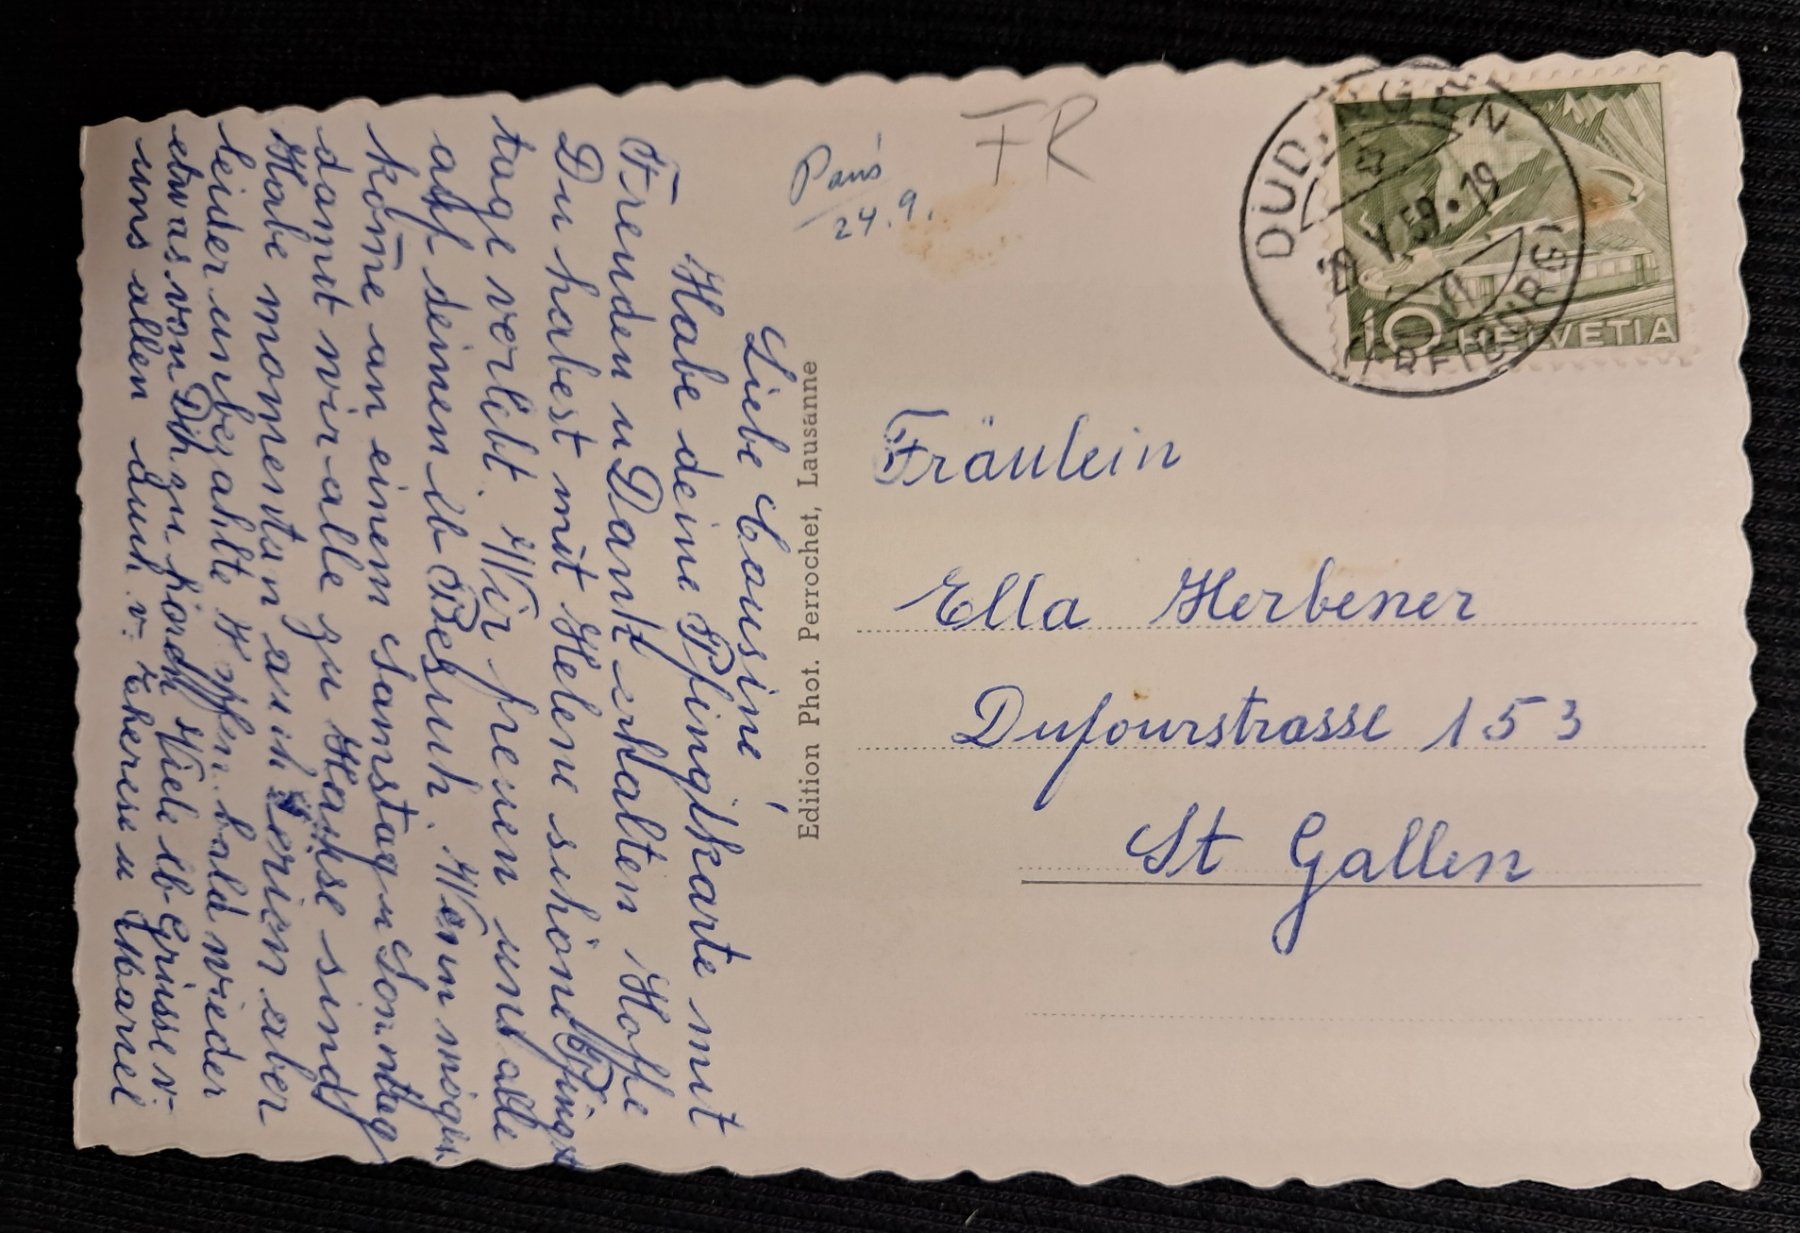 Liebe Cousine!
Habe deine Pfingstkarte mit
Freuden u Dank erhalten Hoffe
Du habest mit Helene schöne Pfingst
tage verlebt. Wir freuen uns alle
auf deinen lb Besuch. Wenn möglich
kom̄e an einem Samstag u Sonntag
damit wir alle zu Hause sind
Habe momentan auch Ferien aber
leider unbezahlte Hoffen bald wieder
etwas von Dir zu hören Viele lb Grüsse v.
uns allen auch v. Therese u Marei
Edition Phot. Perrochet, Lausanne
Paris
24.9.
FR
DÜDINGEN
V.59.19
(FREIBURG)
10 HELVETIA
Fräulein
Ella Herbener
Dufourstrasse 153
St Gallen